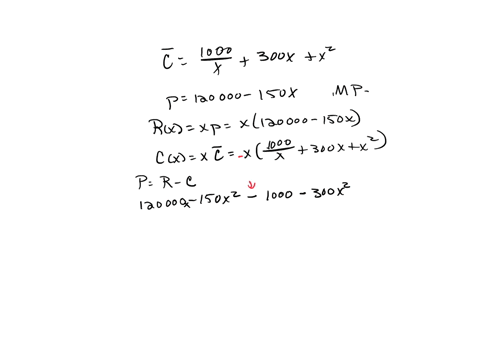 C̅ = 1000/x + 300x + x²
p = 120000 - 150x MP-
R(x) = xp = x(120000 - 150x)
C(x) = x C̅ = -x(1000/x + 300x + x²)
P = R - C
120000x - 150x² - 1000 - 300x²